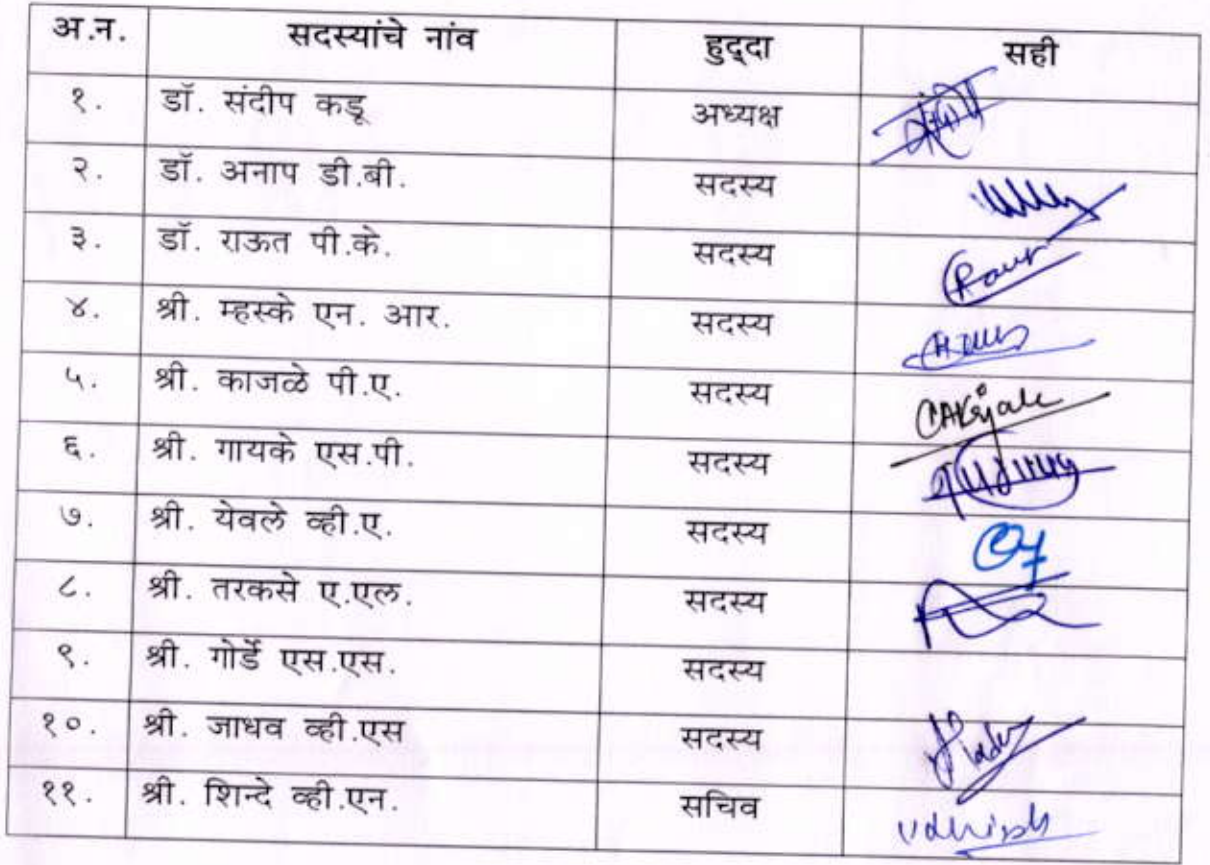 अ.न. सदस्यांचे नांव हुद्‌दा सही
१. डॉ. संदीप कडू अध्यक्ष
२. डॉ. अनाप डी.बी. सदस्य
३. डॉ. राऊत पी.के. सदस्य
४. श्री. म्हस्के एन. आर. सदस्य
५. श्री. काजळे पी.ए. सदस्य
६. श्री. गायके एस.पी. सदस्य
७. श्री. येवले व्ही.ए. सदस्य
८. श्री. तरकसे ए.एल. सदस्य
९. श्री. गोर्डे एस.एस. सदस्य
१०. श्री. जाधव व्ही.एस सदस्य
११. श्री. शिन्दे व्ही.एन. सचिव